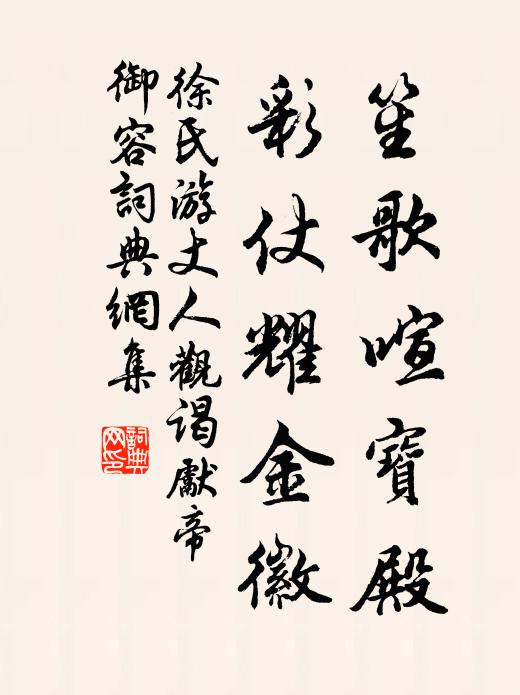 笙歌喧寶殿
彩仗耀金徽
徐氏游丈人觀謁獻帝
御容詞典網集
詞典
网印